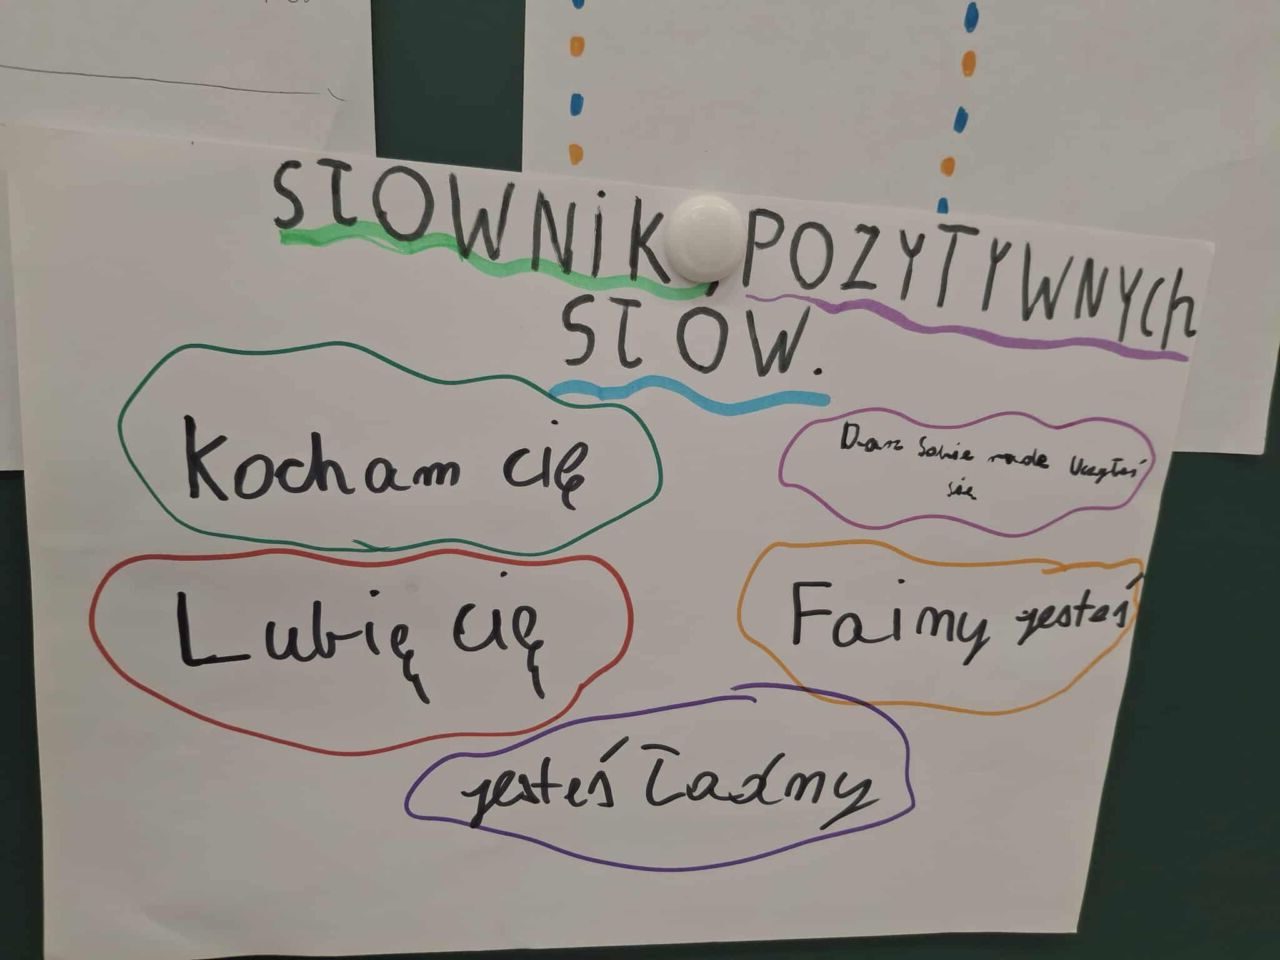 SŁOWNiK POZYTYWNYCh
SŁÓW.
Kocham cię
Dasz sobie rade Uczyłeś
się
Lubię cię
Fajny jesteś
jesteś Ładny